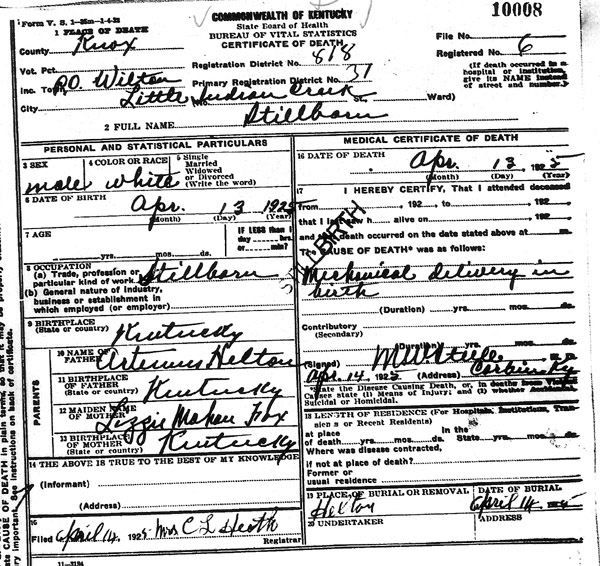 Form V. S. 1-25m-1-4-22
COMMONWEALTH OF KENTUCKY
10008
1 PLACE OF DEATH
State Board of Health
BUREAU OF VITAL STATISTICS
CERTIFICATE OF DEATH
County Knox
File No.
Registration District No. 818
Registered No. 6
Vot. Pct.
(If death occurred in a
hospital or institution,
give its NAME instead
of street and number.)
Inc. Town P.O. Wilton
Primary Registration District No. 37
City Little Indian Creek St. Ward)
2 FULL NAME Stillborn
PERSONAL AND STATISTICAL PARTICULARS
3 SEX male
4 COLOR OR RACE white
5 Single
Married
Widowed
or Divorced
(Write the word)
6 DATE OF BIRTH
Apr. 13 1925
(Month) (Day) (Year)
7 AGE
yrs. mos. ds.
IF LESS than 1
day hrs.
or min?
8 OCCUPATION
(a) Trade, profession or
particular kind of work Stillborn
(b) General nature of industry,
business or establishment in
which employed (or employer)
9 BIRTHPLACE
(State or country) Kentucky
PARENTS
10 NAME OF
FATHER Artemus Helton
11 BIRTHPLACE
OF FATHER
(State or country) Kentucky
12 MAIDEN NAME
OF MOTHER Lizzie Mahan Fox
13 BIRTHPLACE
OF MOTHER
(State or country) Kentucky
14 THE ABOVE IS TRUE TO THE BEST OF MY KNOWLEDGE
(Informant)
(Address)
15
Filed April 14, 1925 Mrs C L Heath
Registrar
11-3184
MEDICAL CERTIFICATE OF DEATH
16 DATE OF DEATH
Apr. 13, 1925
(Month) (Day) (Year)
17 I HEREBY CERTIFY, That I attended deceased
from 192 to 192
that I last saw h alive on 192
and that death occurred on the date stated above at m.
The CAUSE OF DEATH* was as follows:
STILLBIRTH
Mechanical delivery in
birth
(Duration) yrs. mos. ds.
Contributory
(Secondary)
(Duration) yrs. mos. ds.
(Signed)
Apr. 14 1925 (Address) Corbin Ky
*State the Disease Causing Death, or, in deaths from Violent
Causes state (1) Means of Injury; and (2) whether Accidental,
Suicidal or Homicidal.
18 LENGTH OF RESIDENCE (For Hospitals, Institutions, Transients or Recent Residents)
At place
of death yrs. mos. ds.
In the
State yrs. mos. ds.
Where was disease contracted,
if not at place of death?
Former or
usual residence
19 PLACE OF BURIAL OR REMOVAL
Helton
DATE OF BURIAL
April 14, 25
20 UNDERTAKER
ADDRESS